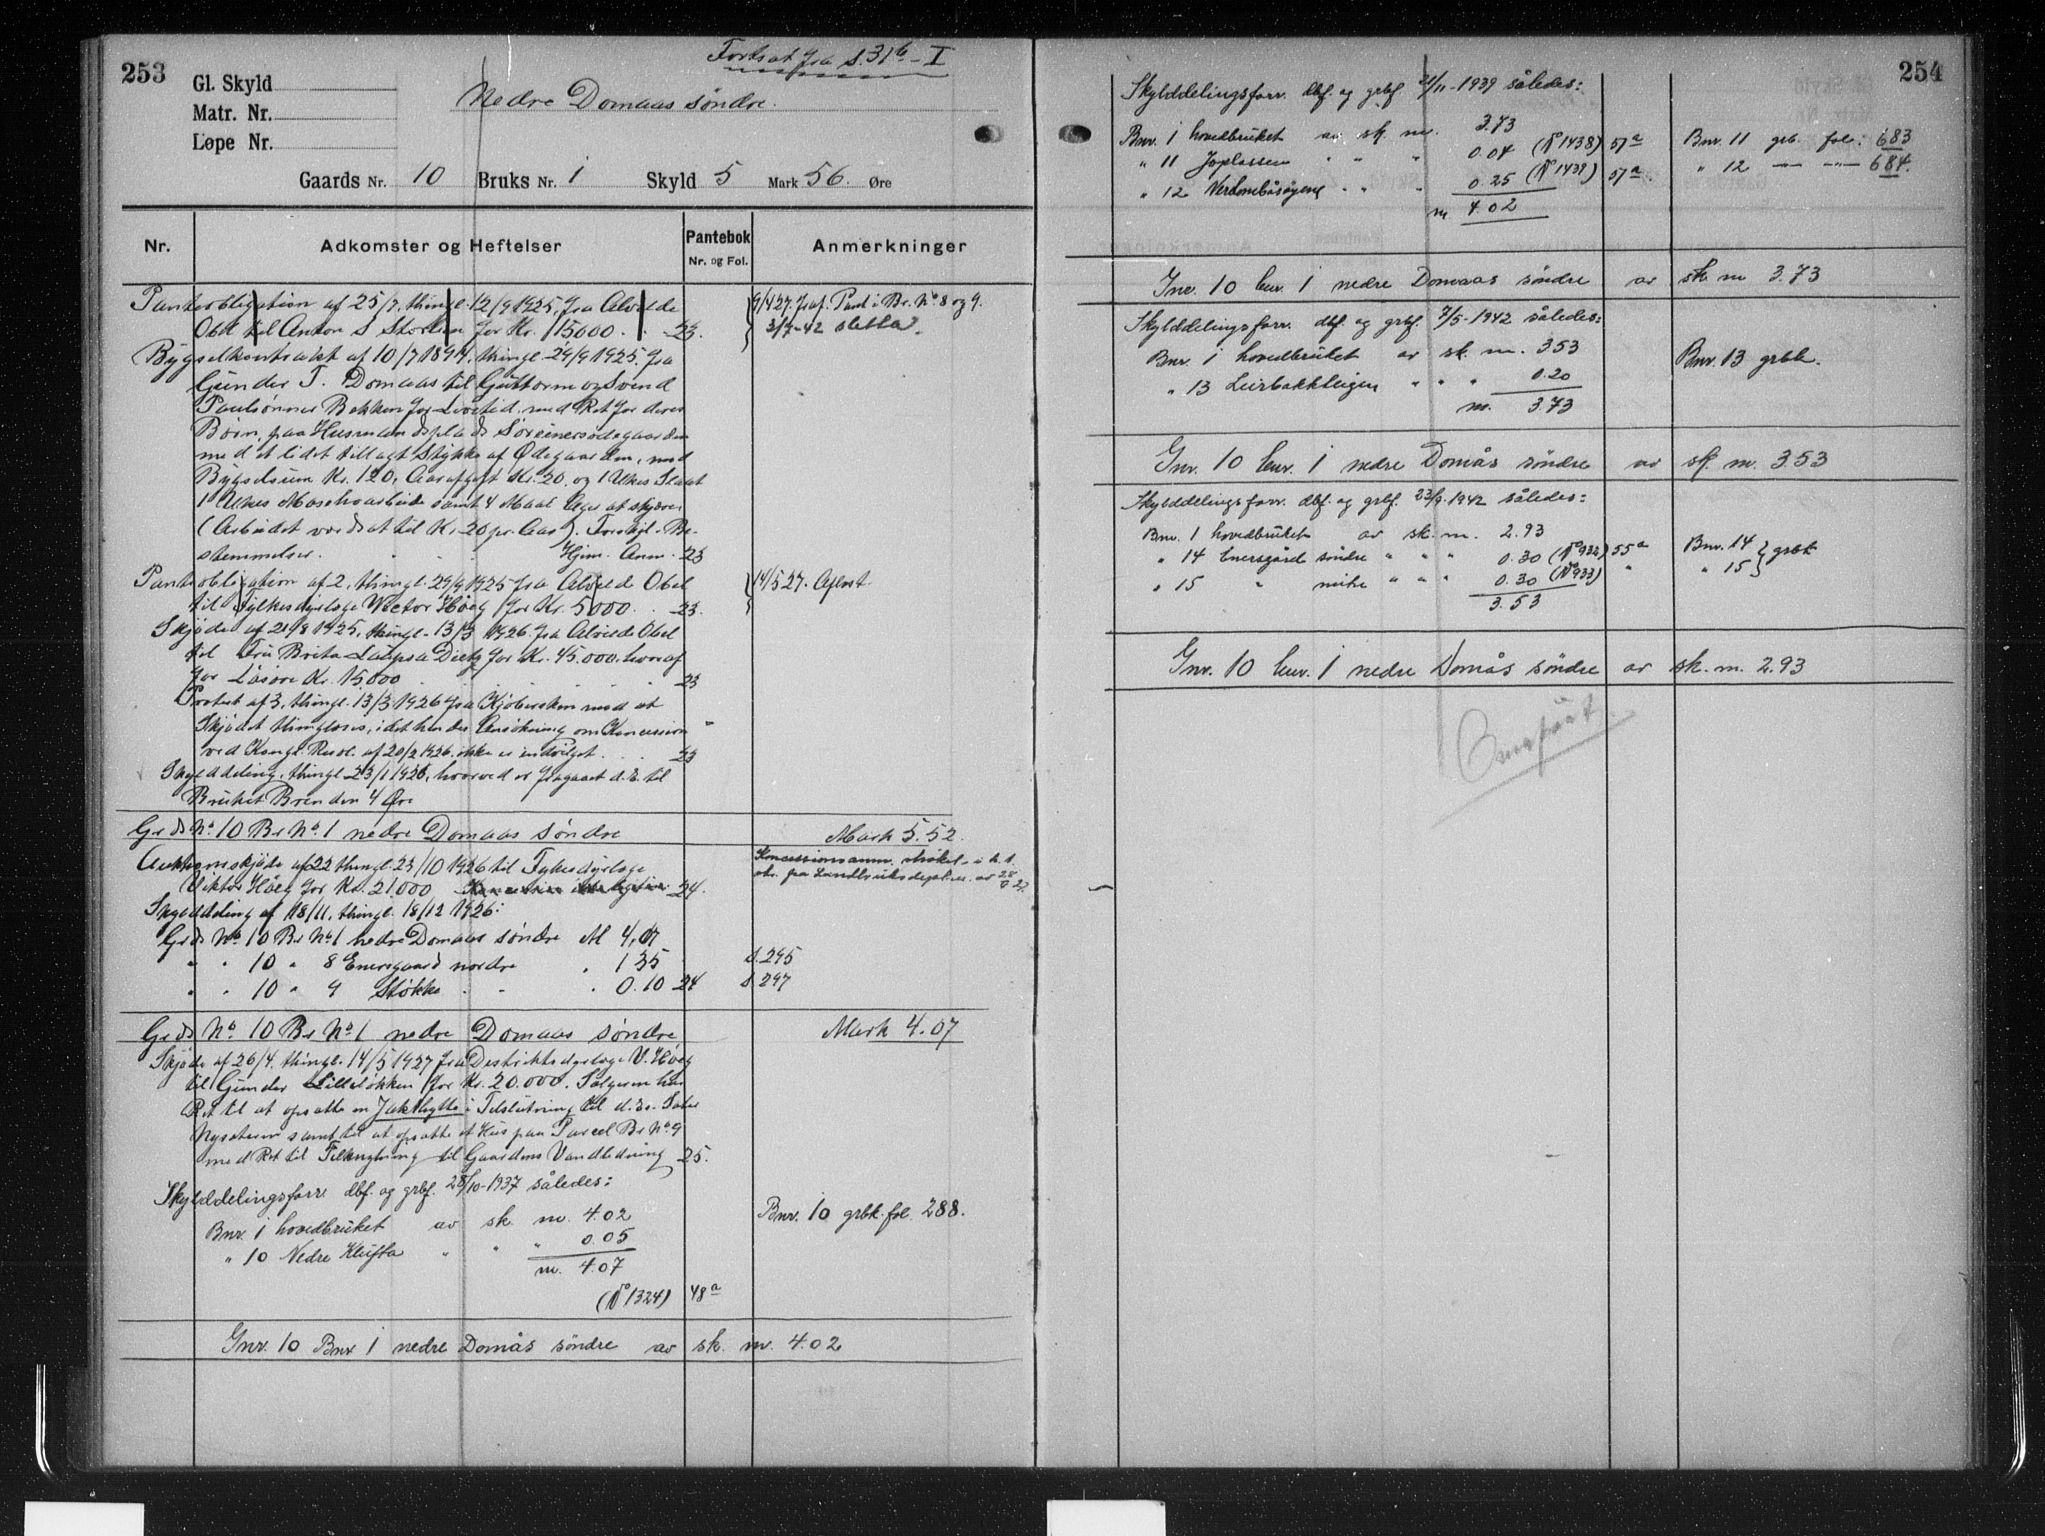 253
Fortsat fra S. 31b - I
Gl. Skyld
Matr. Nr.
Løpe Nr.
Nedre Domaas søndre.
Gaards Nr. 10 Bruks Nr. 1 Skyld 5 Mark 56. Øre
Nr. Adkomster og Heftelser Pantebok Nr. og Fol. Anmerkninger
Pantobligation af 25/7, thingl. 12/9 1925, fra Alvilde 9/4 27. fraf. Pant i Br. No 8 og 9.
Obel til Anton S Storlien for Kr. 15000. . . 23. 3/7-42 sletta.
Bygselkontrakt af 10/7 1894, thingl. 29/9 1925. fra
Gunder T. Domaas til Guttorm og Svend
Paulsønner Bakken for Livstid, med Ret for deres
Børn, paa Husmandsplads
med et lidet tillagt Stykke af Ødegaarden, med
Bygselsum Kr. 120, Aarafgift Kr. 20. og 1 Ukes Slaat
1 Ukes samt 4 Maal Ager at skjære
(Arbeidet værdsat til Kr. 20 pr. Aar). Forskjl. Be-
stemmelser. Hjem. Anm. 23
Pantobligation af 2, thingl. 29/9 1925 fra Alvilde Obel 14/5 27. Aflyst.
til Fylkesdyrlæge Victor Höeg for Kr. 5000. . . 23.
Skjøde af 21/8 1925, thingl. 13/3 1926. fra Alvilde Obel
til Fru Brita Dietz for Kr. 45.000, hvoraf
for Løsøre Kr. 15000 . . . 23
Protest af 3, thingl. 13/3 1926 fra Kjøbersken mod at
Skjødet thinglæses, idet hendes Ansökning om Koncession "
ved Kongl. Resol. af 20/2 1926. ikke er indvilget. . . . 23
Skylddeling, thingl. 23/1 1926, hvorved er fragaaet d. E. til
Bruket Brenden 4 Øre
Grds No. 10 Br No. 1 nedre Domaas søndre Mark 5.52.
Auktionsskjøde af 22 thingl. 23/10 1926 til Fylkesdyrlæge Koncessionsanm.
Viktor Höeg for Kr. 21.000 24. fra Landbruksdept.
Skylddeling af 18/11, thingl. 18/12 1926:
Grds No. 10 Br No. 1 nedre Domaas søndre M 4,07
" " 10 " 8 Enersgaard nordre " 1 35 S. 295
" " 10 " 9 Støkke . " . 0.10 24 S. 297
Grds No. 10 Br No. 1 nedre Domaas søndre Mark 4.07
Skjøde af 26/4. thingl. 14/5 1927 fra Destriktsdyrlæge V. Höeg
til Gunder Lilleløkken for Kr. 20.000. Sælgeren har
Ret til at opsætte en Jakthytte i Tilslutning til d. Es. Sæter
Nyseteren samt til at opsætte et Hus paa Parcel Br No. 9
med Ret til Tilknytning til Gaardens Vandledning 25.
Skylddelingsforr. dbf. og grbf. 28/10-1937 således:
Bnr. 1 hovedbruket av sk. m. 4.02 Bnr. 10 grbk. fol. 288.
" 10 Nedre Klufta " " " 0.05
m. 4.07
(No 1324) 48a
Gnr. 10 Bnr 1 nedre Domås søndre av sk. m. 4.02
254
Skylddelingsforr. dbf. og grbf. 21/11-1939 således:
Bnr. 1 hovedbruket av sk. m. 3.73
" 11 Joplassen " " " 0.04 (No 1438) 57a Bnr. 11 grb. fol. 683
" 12 " " 0.25 (No 1439) 57a. " 12 — — 684.
m 4.02
Gnr. 10 bnr. 1 nedre Domaas søndre av sk. m 3.73
Skylddelingsforr. dbf. og grbf. 7/5-1942 således:
Bnr. 1 hovedbruket av sk. m. 3.53 Bnr. 13 grbk.
" 13 Leirbakkteigen " " " 0.20
m. 3.73
Gnr. 10 bnr. 1 nedre Domås søndre av sk. m. 3.53
Skylddelingsforr. dbf. og grbf. 23/9-1942 således:
Bnr. 1 hovedbruket av sk. m. 2.93
" 14 Enersgård søndre " " " 0.30 (No 932) 55a Bnr. 14 grbk
" 15 " midtre " " " 0.30 (No 933) " " 15
3.53
Gnr. 10 bnr. 1 nedre Domås søndre av sk. m. 2.93
Omført.